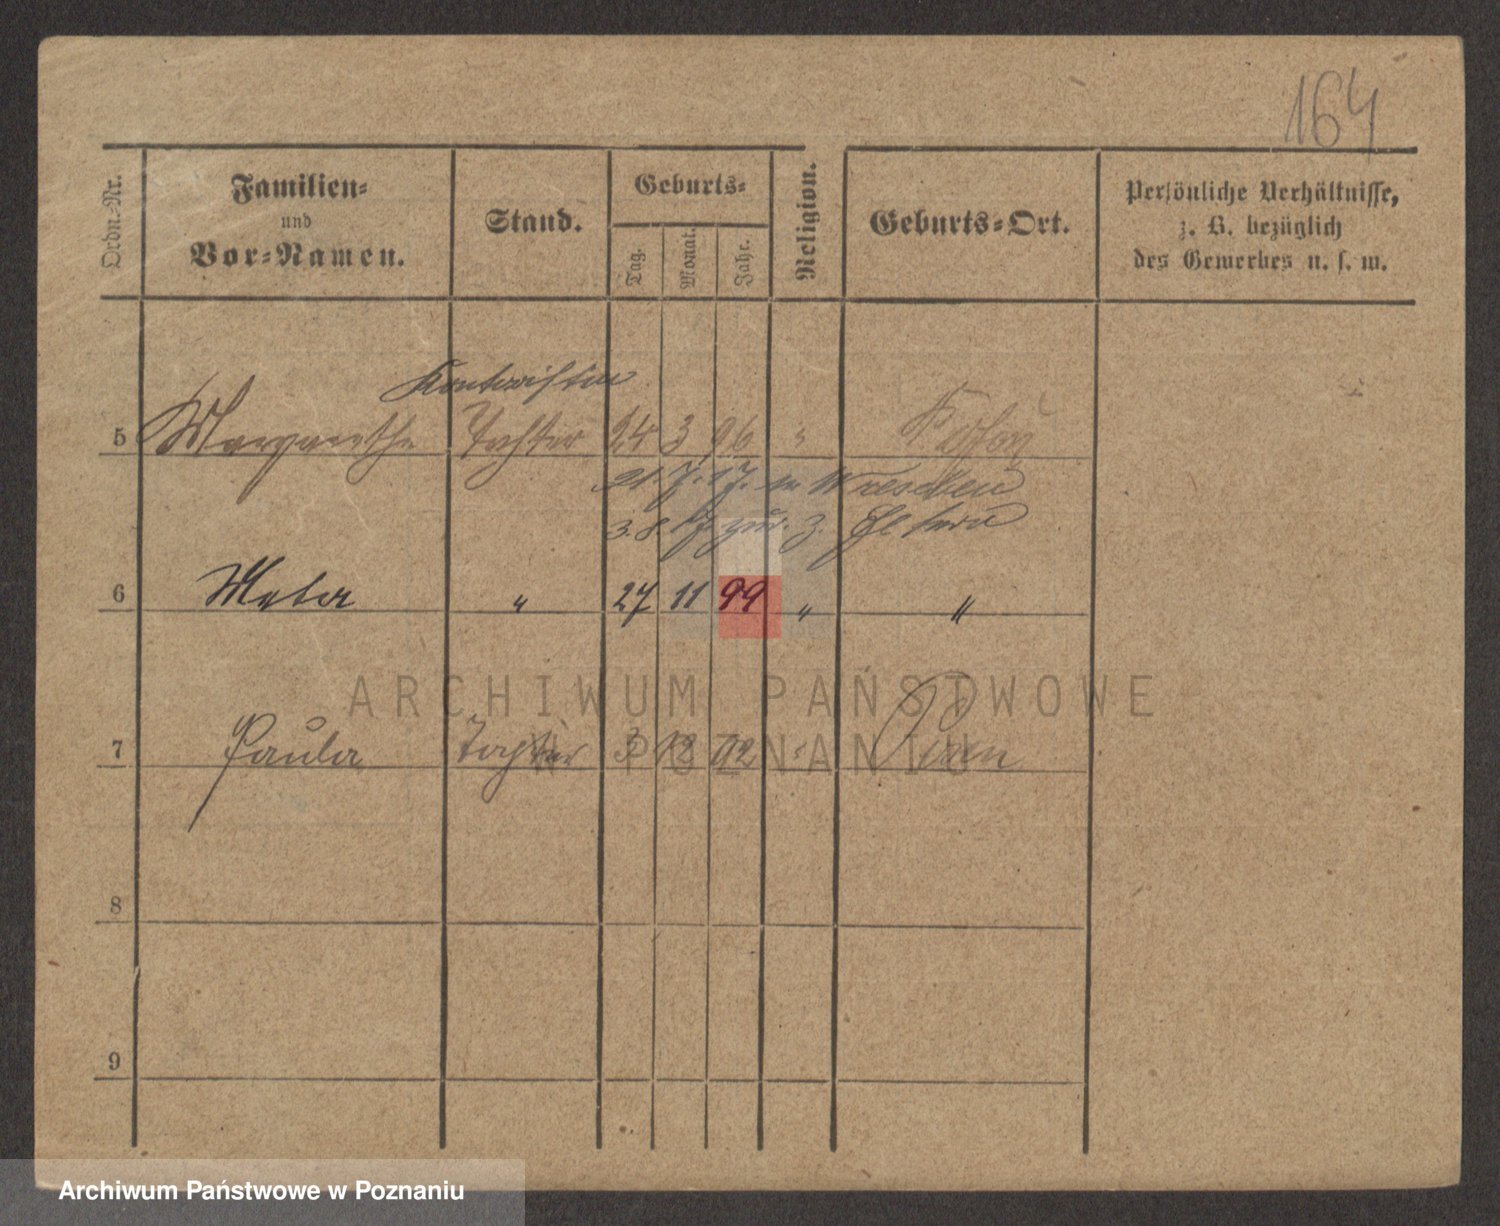 164
Ordn.-Nr. Familien- und Vor-Namen. Stand. Geburts- Tag. Monat. Jahr. Religion. Geburts-Ort. Persönliche Verhältnisse, z. B. bezüglich des Gewerbes u. s. w.
Kontoristin
5 Margarethe Tochter 24 3 96 "
21. 7. 17. in Wreschen
3. 8. 17 zur. z. Eltern
6 Meta " 27 11 99 " "
7 Paula Tochter 3 12 02 " Posen
8
9
ARCHIWUM PAŃSTWOWE
W POZNANIU
Archiwum Państwowe w Poznaniu